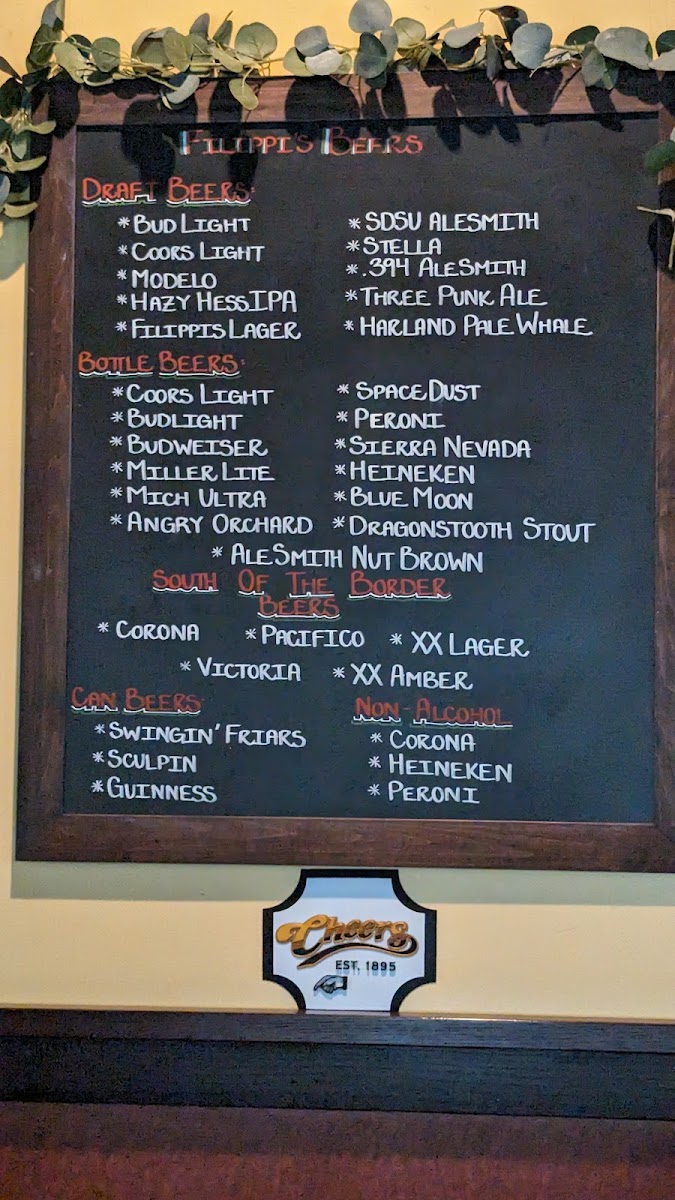 FILIPPI'S BEERS
DRAFT BEERS:
*BUD LIGHT
*COORS LIGHT
*MODELO
*HAZY HESS IPA
*FILIPPIS LAGER
*SDSU ALESMITH
*STELLA
*.394 ALESMITH
*THREE PUNK ALE
*HARLAND PALE WHALE
BOTTLE BEERS:
*COORS LIGHT
*BUDLIGHT
*BUDWEISER
*MILLER LITE
*MICH ULTRA
*ANGRY ORCHARD
*SPACE DUST
*PERONI
*SIERRA NEVADA
*HEINEKEN
*BLUE MOON
*DRAGONSTOOTH STOUT
*ALESMITH NUT BROWN
SOUTH OF THE BORDER
BEERS
*CORONA *PACIFICO *XX LAGER
*VICTORIA *XX AMBER
CAN BEERS:
*SWINGIN' FRIARS
*SCULPIN
*GUINNESS
NON-ALCOHOL
*CORONA
*HEINEKEN
*PERONI
Cheers
EST. 1895